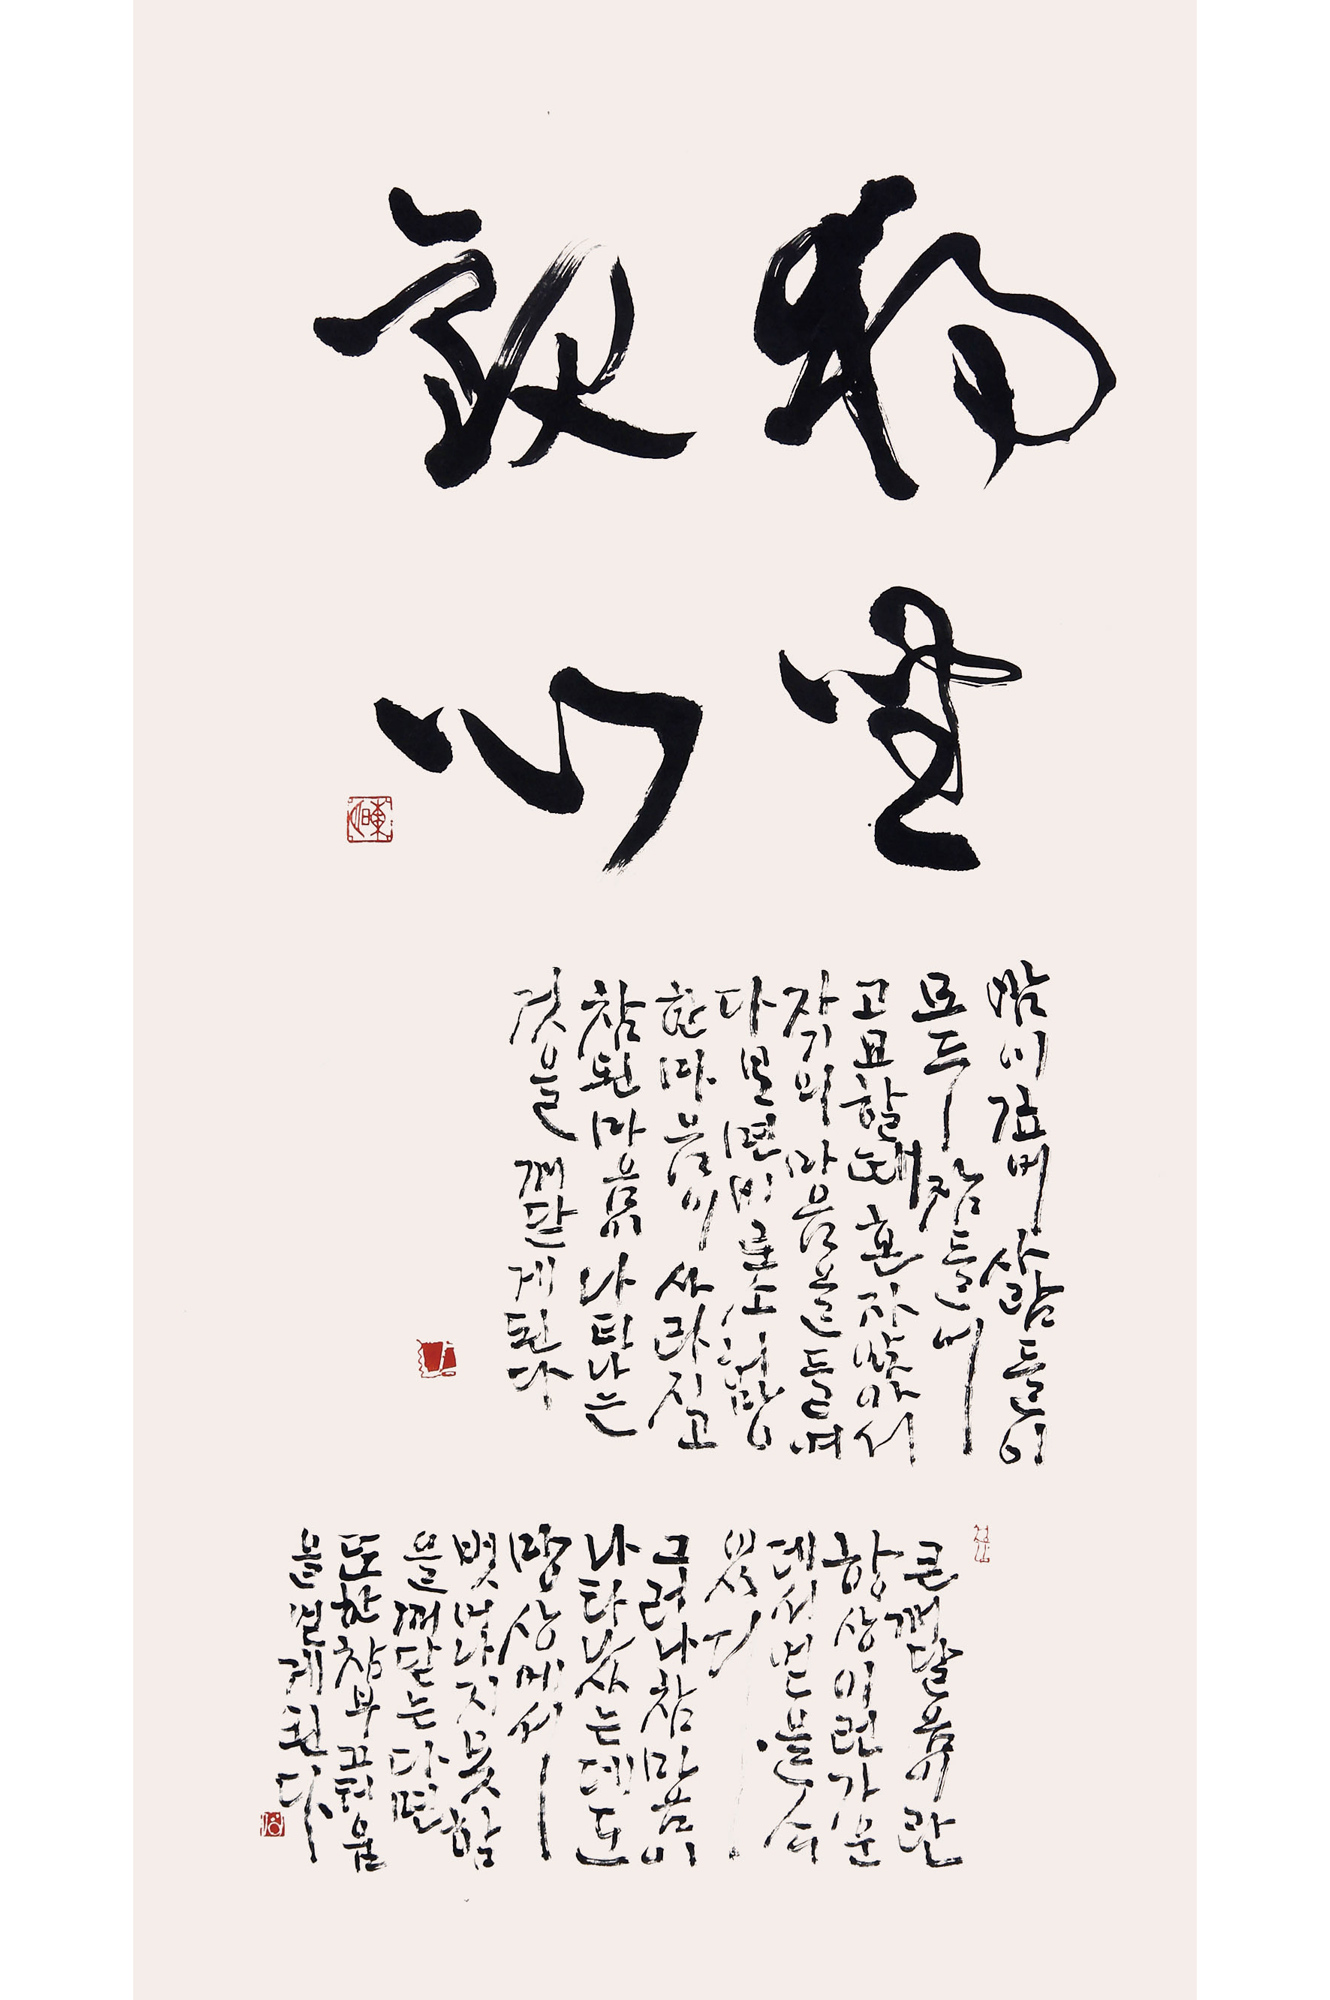 獨坐
觀心
밤이 깊어 사람들이
모두 잠들어
고요할 때 혼자 앉아서
자기의 마음을 들여
다보면 비로소 허망
한 마음이 사라지고
참된 마음이 나타나는
것을 깨닫게 된다
큰 깨달음이란
항상 이런 가운
데서 얻을 수
있다
그러나 참 마음이
나타났는데도
망상에서
벗어나지 못함
을 깨닫는다면
또한 참 부끄러움
을 얻게 된다